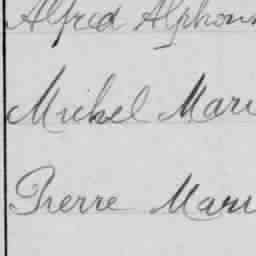 Alfred Alphons
Michel Mari
Pierre Mari